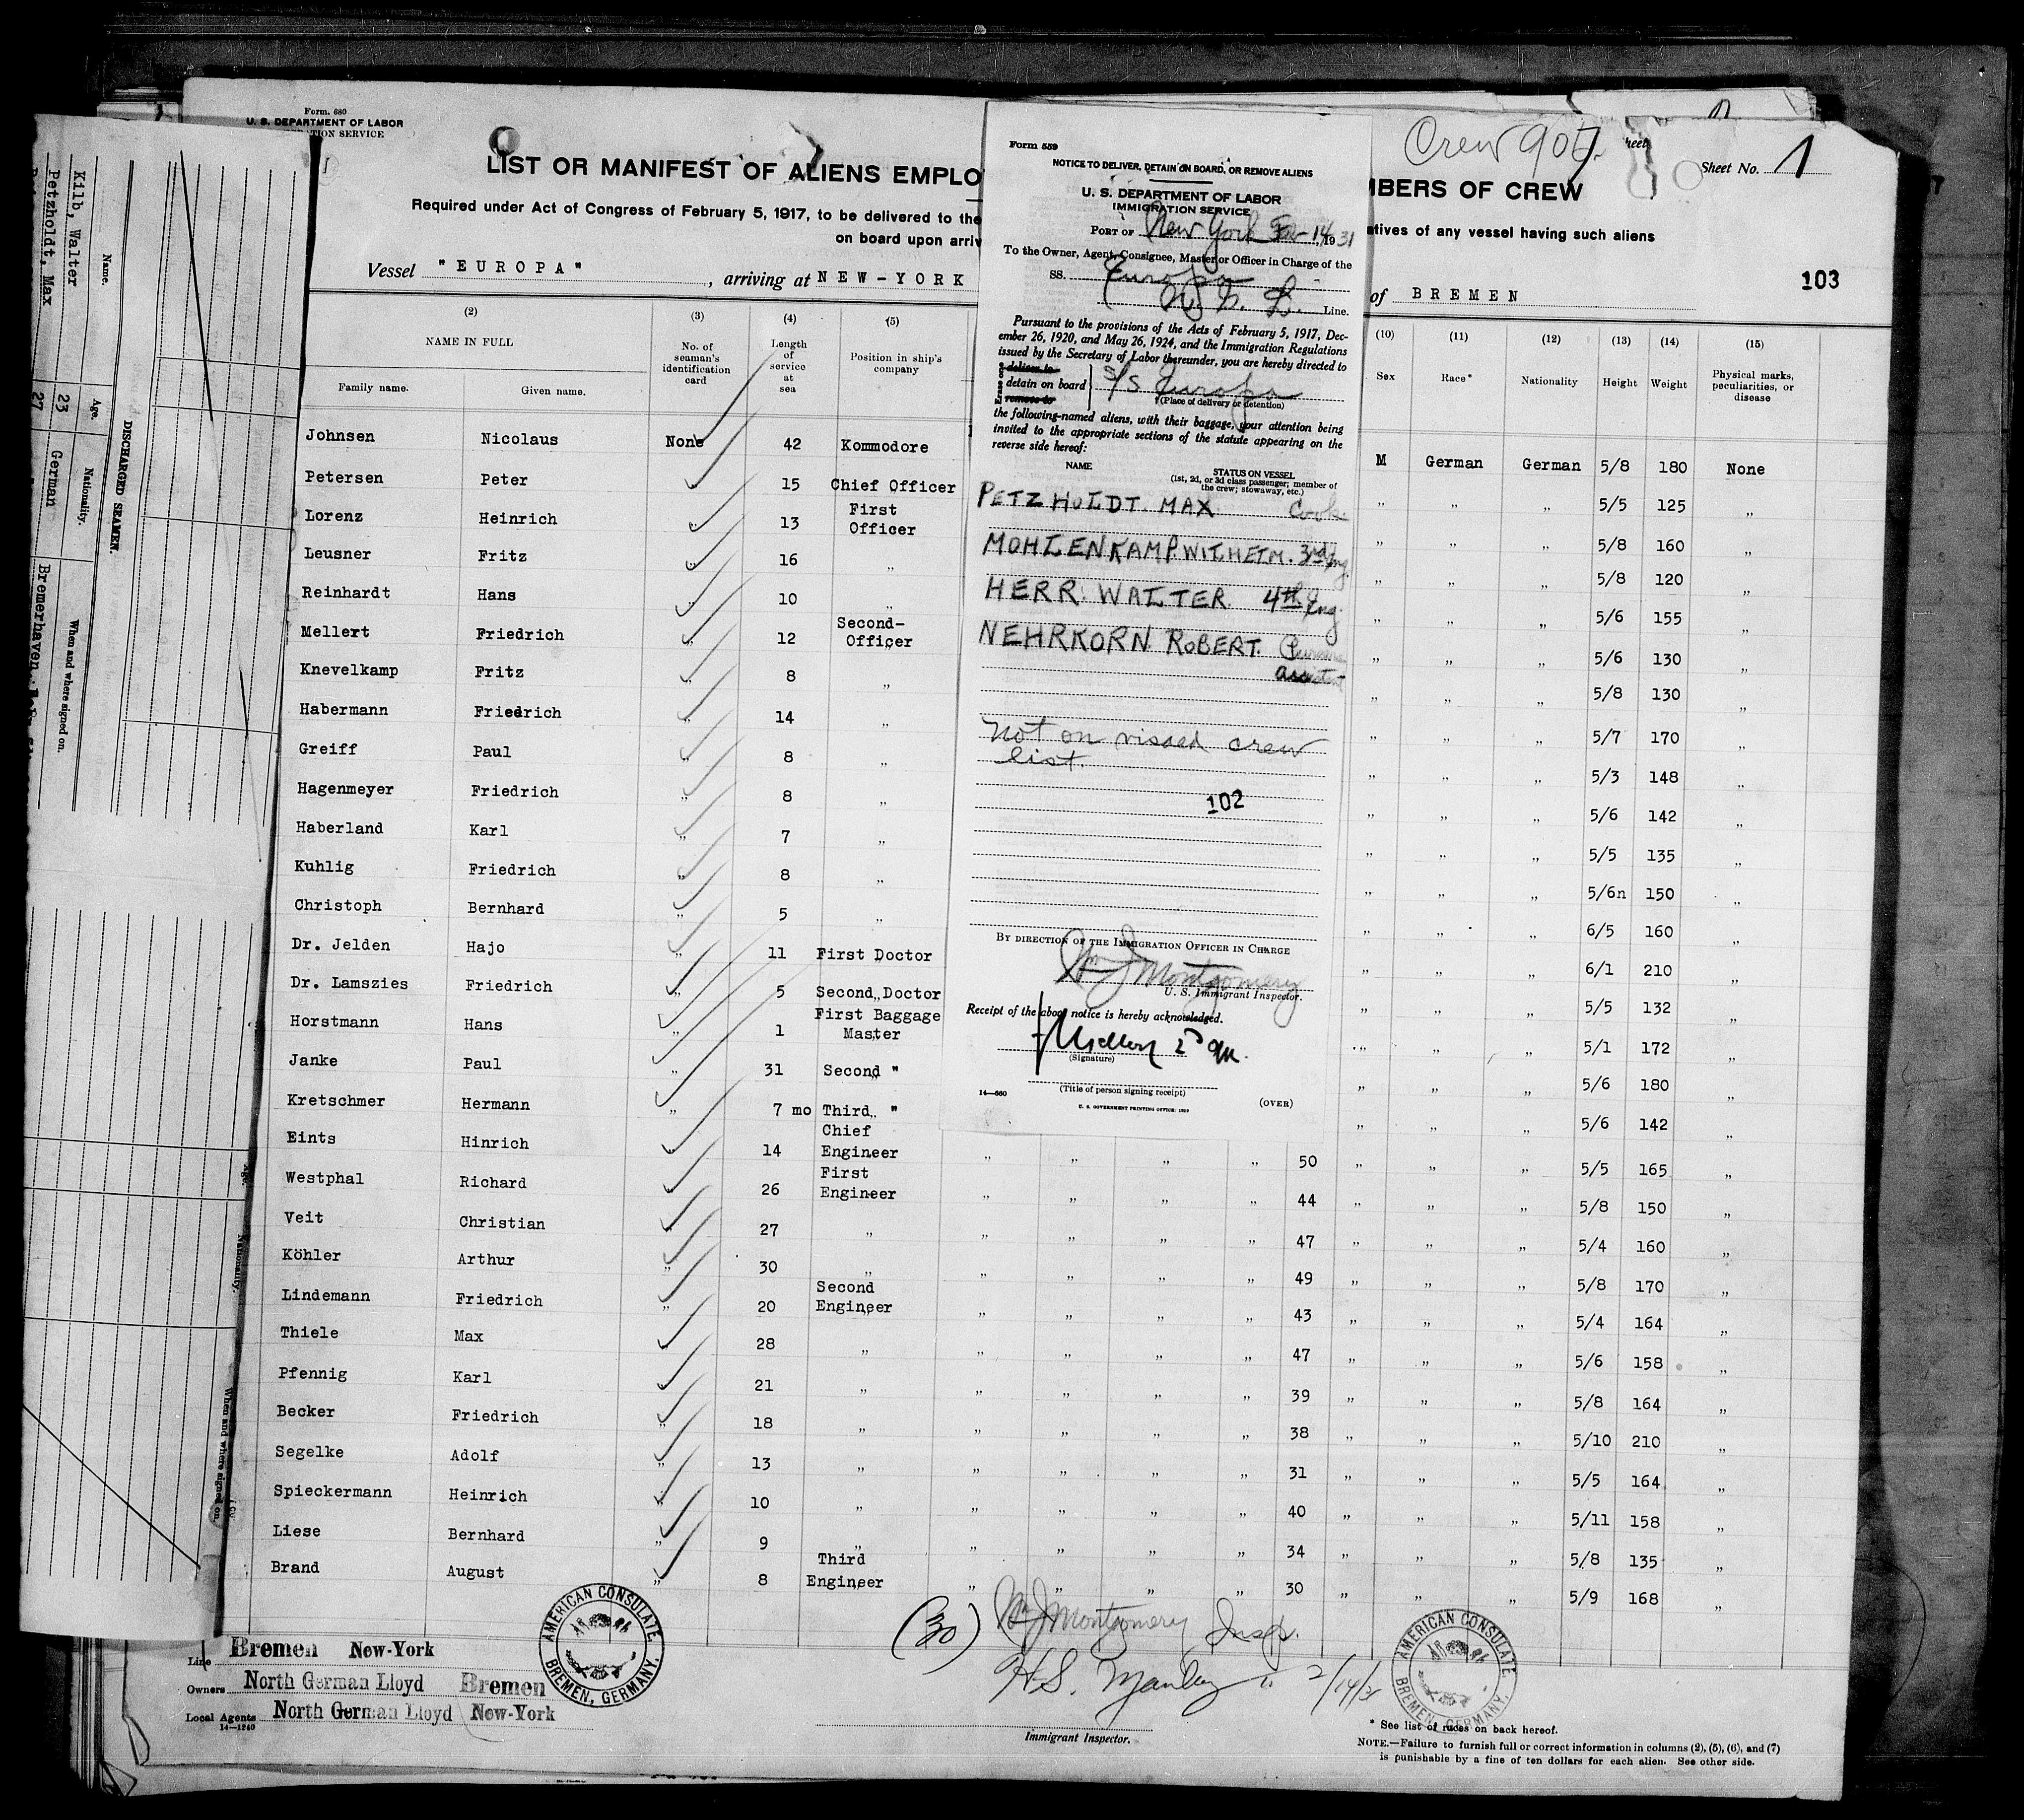 Form. 680
U. S. DEPARTMENT OF LABOR
ATION SERVICE
LIST OR MANIFEST OF ALIENS EMPLO
MBERS OF CREW
Crew 907.
heet
Sheet No. 1
Required under Act of Congress of February 5, 1917, to be delivered to the
atives of any vessel having such aliens
on board upon arriv
103
Vessel "EUROPA", arriving at NEW-YORK
of BREMEN
(2) (3) (4) (5) (10) (11) (12) (13) (14) (15)
NAME IN FULL
Family name. Given name.
No. of seaman's identification card
Length of service at sea
Position in ship's company
Sex Race* Nationality Height Weight Physical marks, peculiarities, or disease
Johnsen Nicolaus None 42 Kommodore M German German 5/8 180 None
Petersen Peter " 15 Chief Officer " " " 5/5 125 "
Lorenz Heinrich " 13 First Officer " " " 5/8 160 "
Leusner Fritz " 16 " " " " 5/8 120 "
Reinhardt Hans " 10 " " " " 5/6 155 "
Mellert Friedrich " 12 Second-Officer " " " 5/6 130 "
Knevelkamp Fritz " 8 " " " " 5/8 130 "
Habermann Friedrich " 14 " " " " 5/7 170 "
Greiff Paul " 8 " " " " 5/3 148 "
Hagenmeyer Friedrich " 8 " " " " 5/6 142 "
Haberland Karl " 7 " " " " 5/5 135 "
Kuhlig Friedrich " 8 " " " " 5/6n 150 "
Christoph Bernhard " 5 " " " " 6/5 160 "
Dr. Jelden Hajo " 11 First Doctor " " " 6/1 210 "
Dr. Lamszies Friedrich " 5 Second Doctor " " " 5/5 132 "
Horstmann Hans " 1 First Baggage Master " " " 5/1 172 "
Janke Paul " 31 Second " " " " 5/6 180 "
Kretschmer Hermann " 7 mo Third " " " " 5/6 142 "
Eints Hinrich " 14 Chief Engineer " " " " 50 " " " 5/5 165 "
Westphal Richard " 26 First Engineer " " " " 44 " " " 5/8 150 "
Veit Christian " 27 " " " " " 47 " " " 5/4 160 "
Köhler Arthur " 30 " " " " " 49 " " " 5/8 170 "
Lindemann Friedrich " 20 Second Engineer " " " " 43 " " " 5/4 164 "
Thiele Max " 28 " " " " " 47 " " " 5/6 158 "
Pfennig Karl " 21 " " " " " 39 " " " 5/8 164 "
Becker Friedrich " 18 " " " " " 38 " " " 5/10 210 "
Segelke Adolf " 13 " " " " " 31 " " " 5/5 164 "
Spieckermann Heinrich " 10 " " " " " 40 " " " 5/11 158 "
Liese Bernhard " 9 " " " " " 34 " " " 5/8 135 "
Brand August " 8 Third Engineer " " " " 30 " " " 5/9 168 "
(30) Wm J Montgomery Insp.
H.S. Manley " 2/14/31
Immigrant Inspector.
Line Bremen New-York
Owners North German Lloyd Bremen
Local Agents North German Lloyd New-York
14—1240
AMERICAN CONSULATE
BREMEN, GERMANY.
AMERICAN CONSULATE
BREMEN, GERMANY.
* See list of races on back hereof.
NOTE.—Failure to furnish full or correct information in columns (2), (5), (6), and (7)
is punishable by a fine of ten dollars for each alien. See other side.
Form 559
NOTICE TO DELIVER, DETAIN ON BOARD, OR REMOVE ALIENS
U. S. DEPARTMENT OF LABOR
IMMIGRATION SERVICE
PORT OF New York Feb 14, 1931
To the Owner, Agent, Consignee, Master or Officer in Charge of the
SS. Europa
N. G. L. Line.
Pursuant to the provisions of the Acts of February 5, 1917, Dec-
ember 26, 1920, and May 26, 1924, and the Immigration Regulations
issued by the Secretary of Labor thereunder, you are hereby directed to
deliver to
detain on board S/S Europa
remove to
(Place of delivery or detention)
the following-named aliens, with their baggage, your attention being
invited to the appropriate sections of the statute appearing on the
reverse side hereof:
NAME STATUS ON VESSEL
(1st, 2d, or 3d class passenger; member of
the crew; stowaway, etc.)
PETZHOLDT. MAX Cook
MOHLENKAMP WILHELM. 3rd Eng.
HERR WALTER 4th Eng.
NEHRKORN ROBERT.
Assistant
Not on visaed crew
list.
102
BY DIRECTION OF THE IMMIGRATION OFFICER IN CHARGE
Wm J Montgomery
U. S. Immigrant Inspector.
Receipt of the above notice is hereby acknowledged.
(Signature)
(Title of person signing receipt)
14—560
U. S. GOVERNMENT PRINTING OFFICE: 1929
(OVER)
DISCHARGED SEAMEN.
Name. Age. Nationality. When and where signed on.
Kilb, Walter 23 German Bremerhaven
Petzholdt, Max 27
Age. Nationality. When and where signed on.